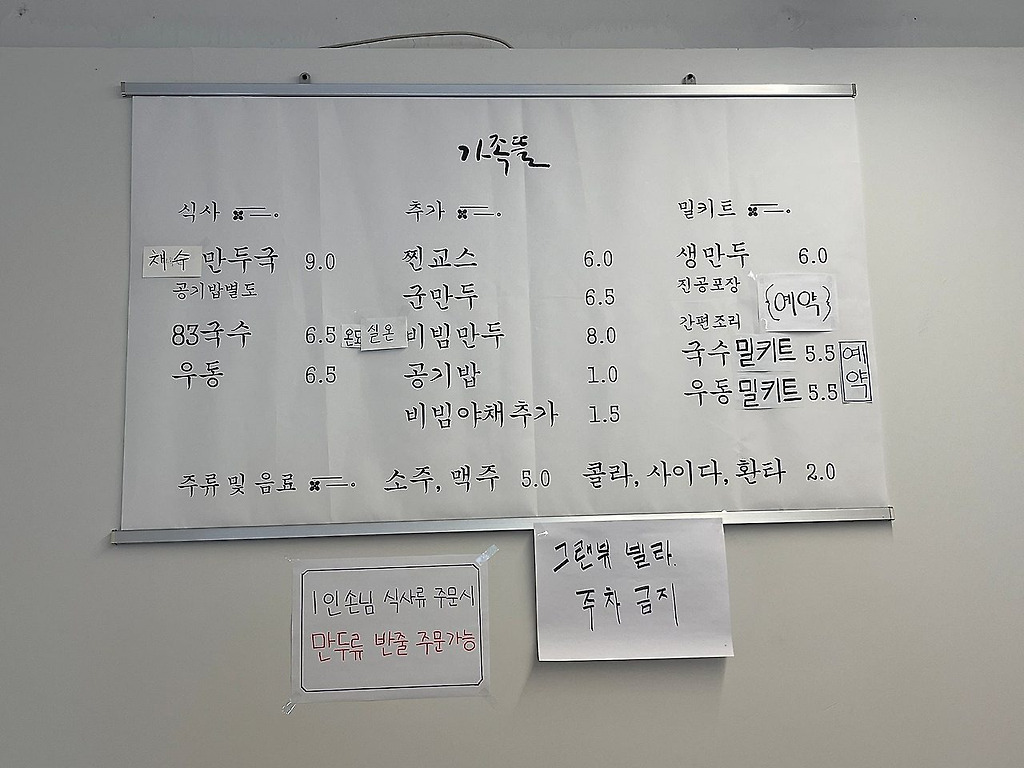 가족뜰
식사
채수 만두국 9.0
공기밥별도
83국수 6.5
우동 6.5
추가
찐교스 6.0
군만두 6.5
온도 실온 비빔만두 8.0
공기밥 1.0
비빔야채추가 1.5
밀키트
생만두 6.0
진공포장
{예약}
간편조리
국수밀키트 5.5
우동밀키트 5.5
예약
주류 및 음료 소주, 맥주 5.0 콜라, 사이다, 환타 2.0
1인손님 식사류 주문시
만두류 반줄 주문가능
그랜뷰 빌라.
주차 금지